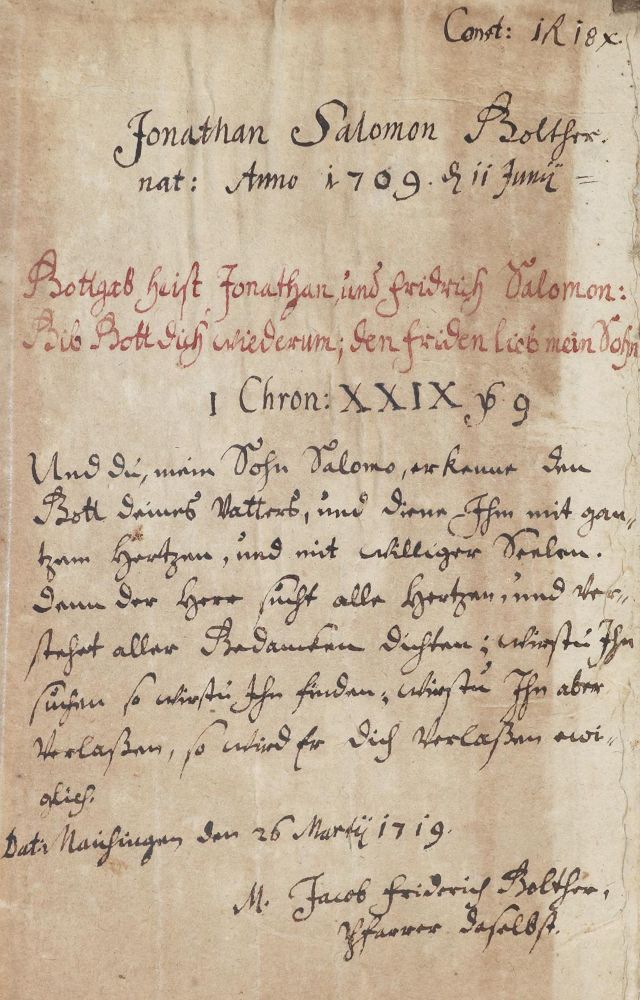 Const: 1R 18x.
Jonathan Salomon Golther.
nat: Anno 1709. d 11 Junij
Gottgab heist Jonathan, und fridrich Salomon:
Gib Gott dich wiederum; den friden lieb mein Sohn
1 Chron: XXIX ꝟ 9
Und du, mein Sohn Salomo, erkenne den
Gott deines Vatters, und diene Ihm mit gan-
tzem Hertzen, und mit williger Seelen.
denn der Herr sucht alle Hertzen, und ver-
stehet aller Gedancken dichten; wirstu Ihn
suchen so wirstu Ihn finden; wirstu Ihn aber
verlaßen, so wird Er dich verlaßen ewi-
glich.
Dat: Maichingen den 26 Martij 1719.
M. Jacob Friderich Golther,
Pfarrer daselbst.